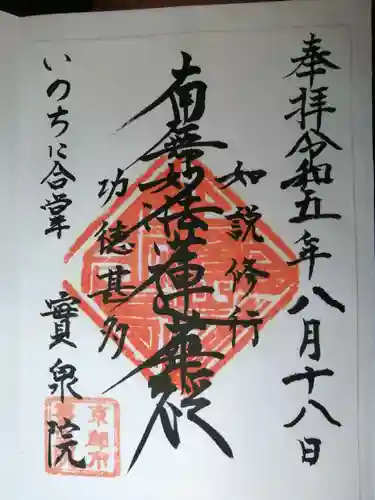 奉拝令和五年八月十八日
如説修行
南無妙法蓮華経
功徳甚多
いのちに合掌
寳泉院